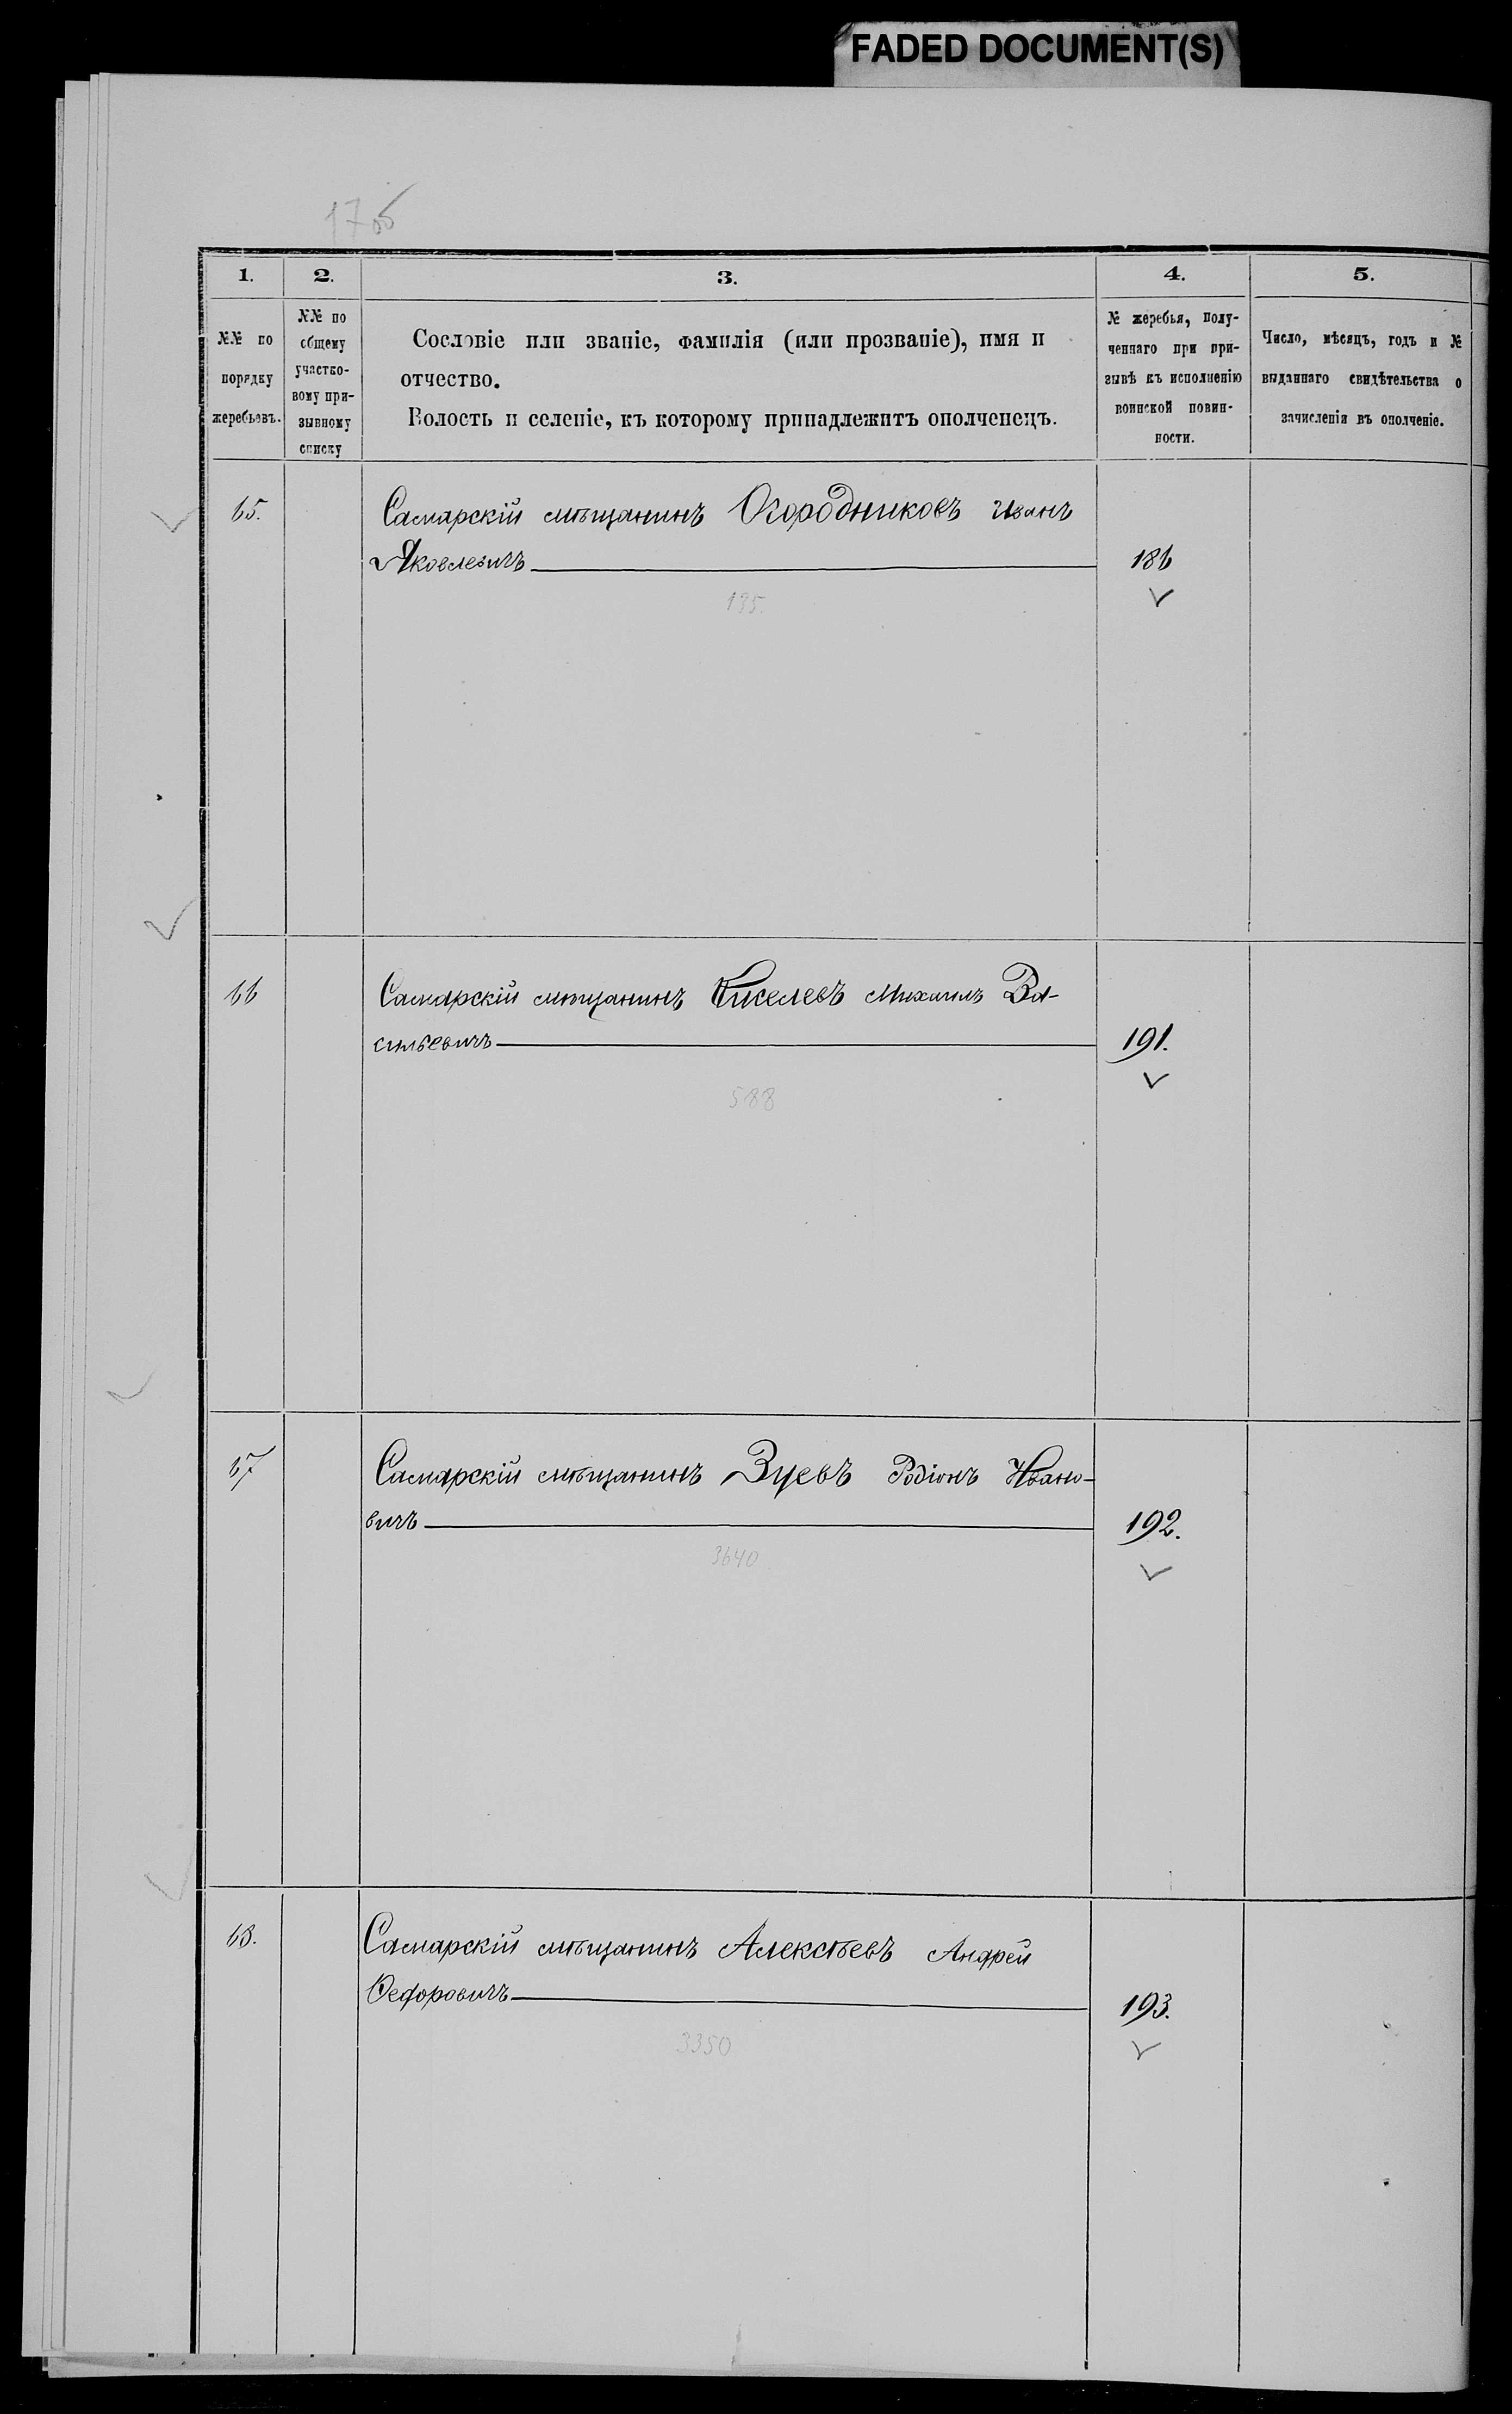 FADED DOCUMENT(S)
17об
1.
2.
3.
4.
5.
№№ по
порядку
жеребьевъ.
№№ по
общему
участко-
вому при-
зывному
списку
Сословіе или званіе, фамилія (или прозваніе), имя и
отчество.
Волость и селеніе, къ которому принадлежитъ ополченецъ.
№ жеребья, полу-
ченнаго при при-
зывѣ къ исполненію
воинской повин-
ности.
Число, мѣсяцъ, годъ и №
выданнаго свидѣтельства о
зачисленія въ ополченіе.
65.
Самарскій мѣщанинъ Огородниковъ Иванъ
Яковлевичъ
186
135.
66
Самарскій мѣщанинъ Киселевъ Михаилъ Ва-
сильевичъ
191.
588
67
Самарскій мѣщанинъ Зуевъ Родіонъ Ивано-
вичъ
192.
3640
68.
Самарскій мѣщанинъ Алексѣевъ Андрей
Федоровичъ
193.
3350